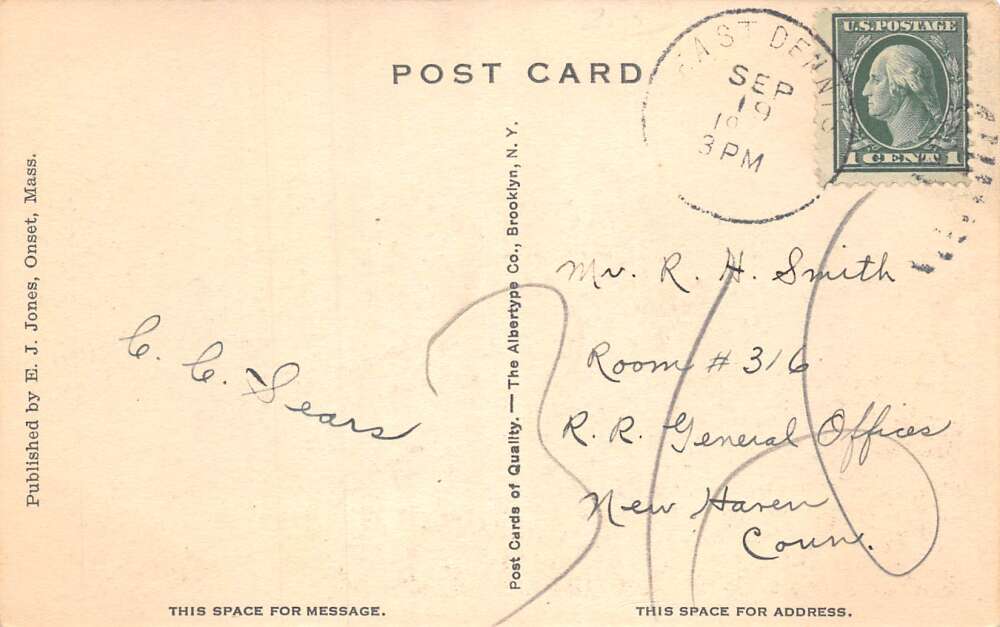 POST CARD
EAST DENNIS
SEP
19
3 PM
U.S. POSTAGE
1 CENT 1
Published by E. J. Jones, Onset, Mass.
Post Cards of Quality. — The Albertype Co., Brooklyn, N. Y.
C. C. Sears
Mr. R. H. Smith
Room # 316
R. R. General Offices
New Haven
Conn.
316
THIS SPACE FOR MESSAGE.
THIS SPACE FOR ADDRESS.